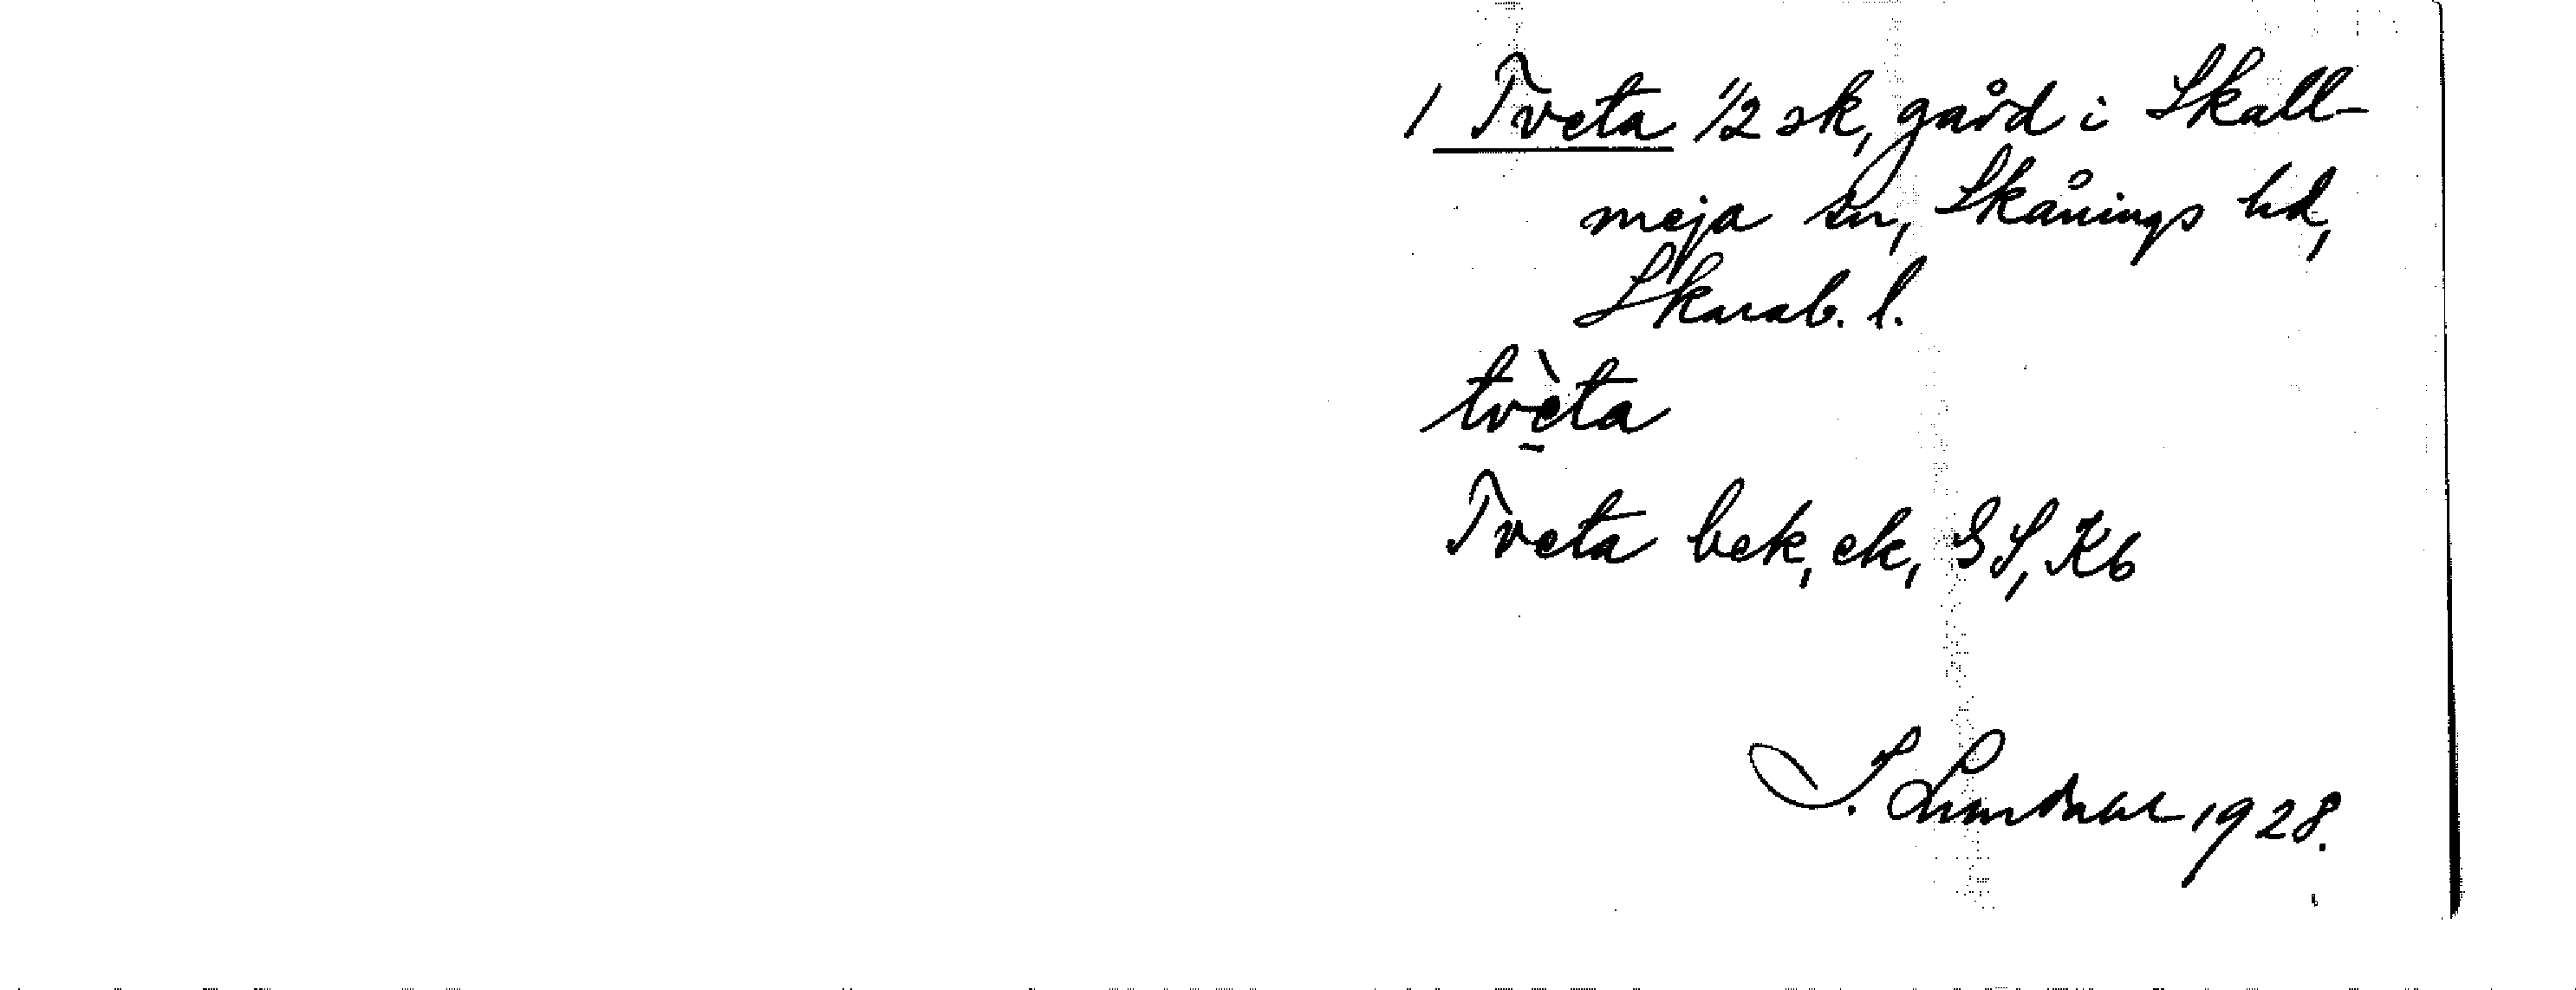 1 Tveta 1/2 sk, gård i Skall-
meja sn, Skånings hd,
Skarab. l.
tvè̱ta
Tveta bek, ek, GS, Kb
S. Lundahl 1928.